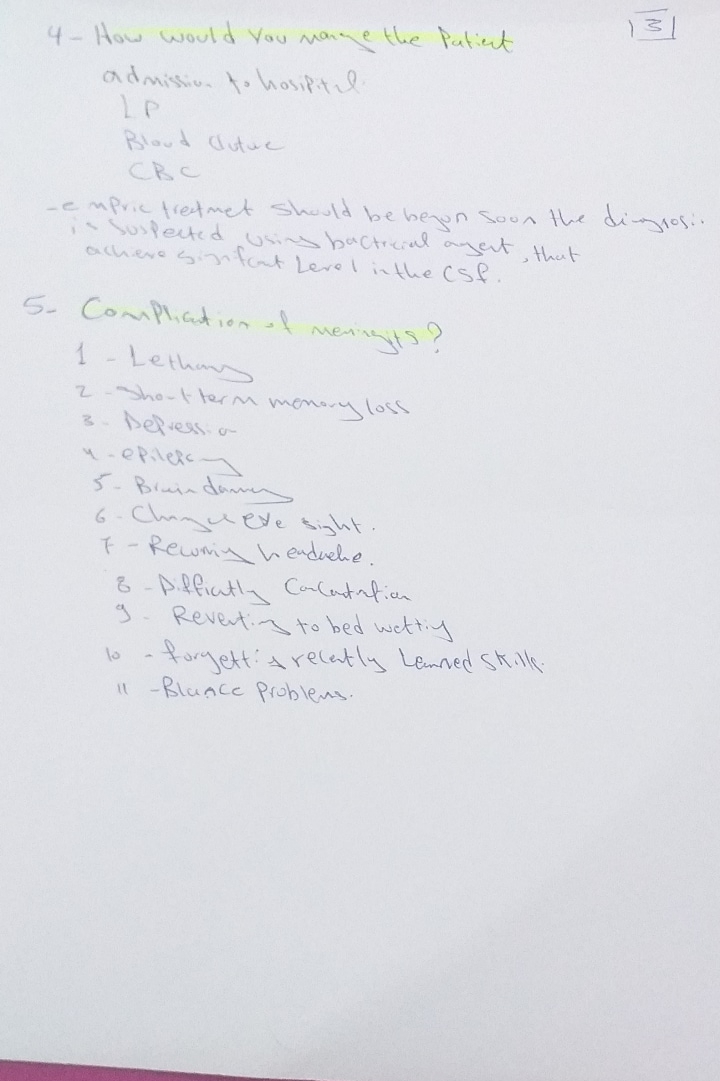 4 - How would you mange the Patient
131
admission to hosipital.
LP
Bloud Cluture
CBC
- empric treetmet should be begun soon the diagnosis
is suspected using bactricial agent, that
achieve signifcnt Level in the CSF.
5 - Complication of meningits?
1 - Letharg
2 - Short term memory loss
3 - Depression
4 - epilepcy
5 - Brain damag
6 - Change eye sight.
7 - Recurring headache.
8 - Difficutly Concentration
9 - Reverting to bed wetting
10 - forgetting recently Learned skills.
11 - Blance Problems.